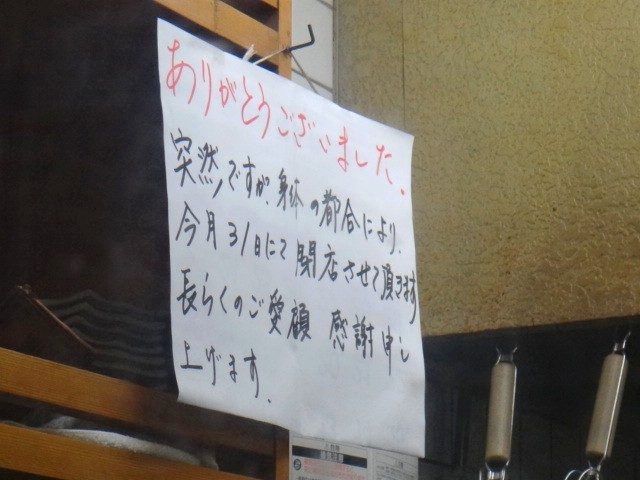 ありがとうございました.
突然ですが、身体の都合により、
今月31日にて閉店させて頂きます
長らくのご愛顧 感謝申し
上げます.